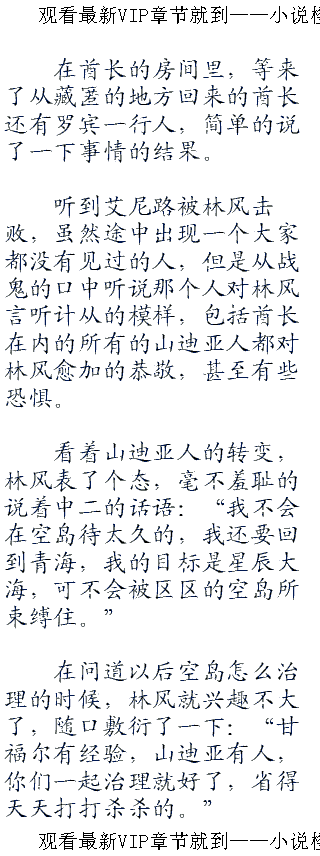 观看最新VIP章节就到——小说
在酋长的房间里，等来
了从藏匿的地方回来的酋长
还有罗宾一行人，简单的说
了一下事情的结果。
听到艾尼路被林风击
败，虽然途中出现一个大家
都没有见过的人，但是从战
鬼的口中听说那个人对林风
言听计从的模样，包括酋长
在内的所有的山迪亚人都对
林风愈加的恭敬，甚至有些
恐惧。
看着山迪亚人的转变，
林风表了个态，毫不羞耻的
说着中二的话语：“我不会
在空岛待太久的，我还要回
到青海，我的目标是星辰大
海，可不会被区区的空岛所
束缚住。”
在问道以后空岛怎么治
理的时候，林风就兴趣不大
了，随口敷衍了一下：“甘
福尔有经验，山迪亚有人，
你们一起治理就好了，省得
天天打打杀杀的。”
观看最新VIP章节就到——小说